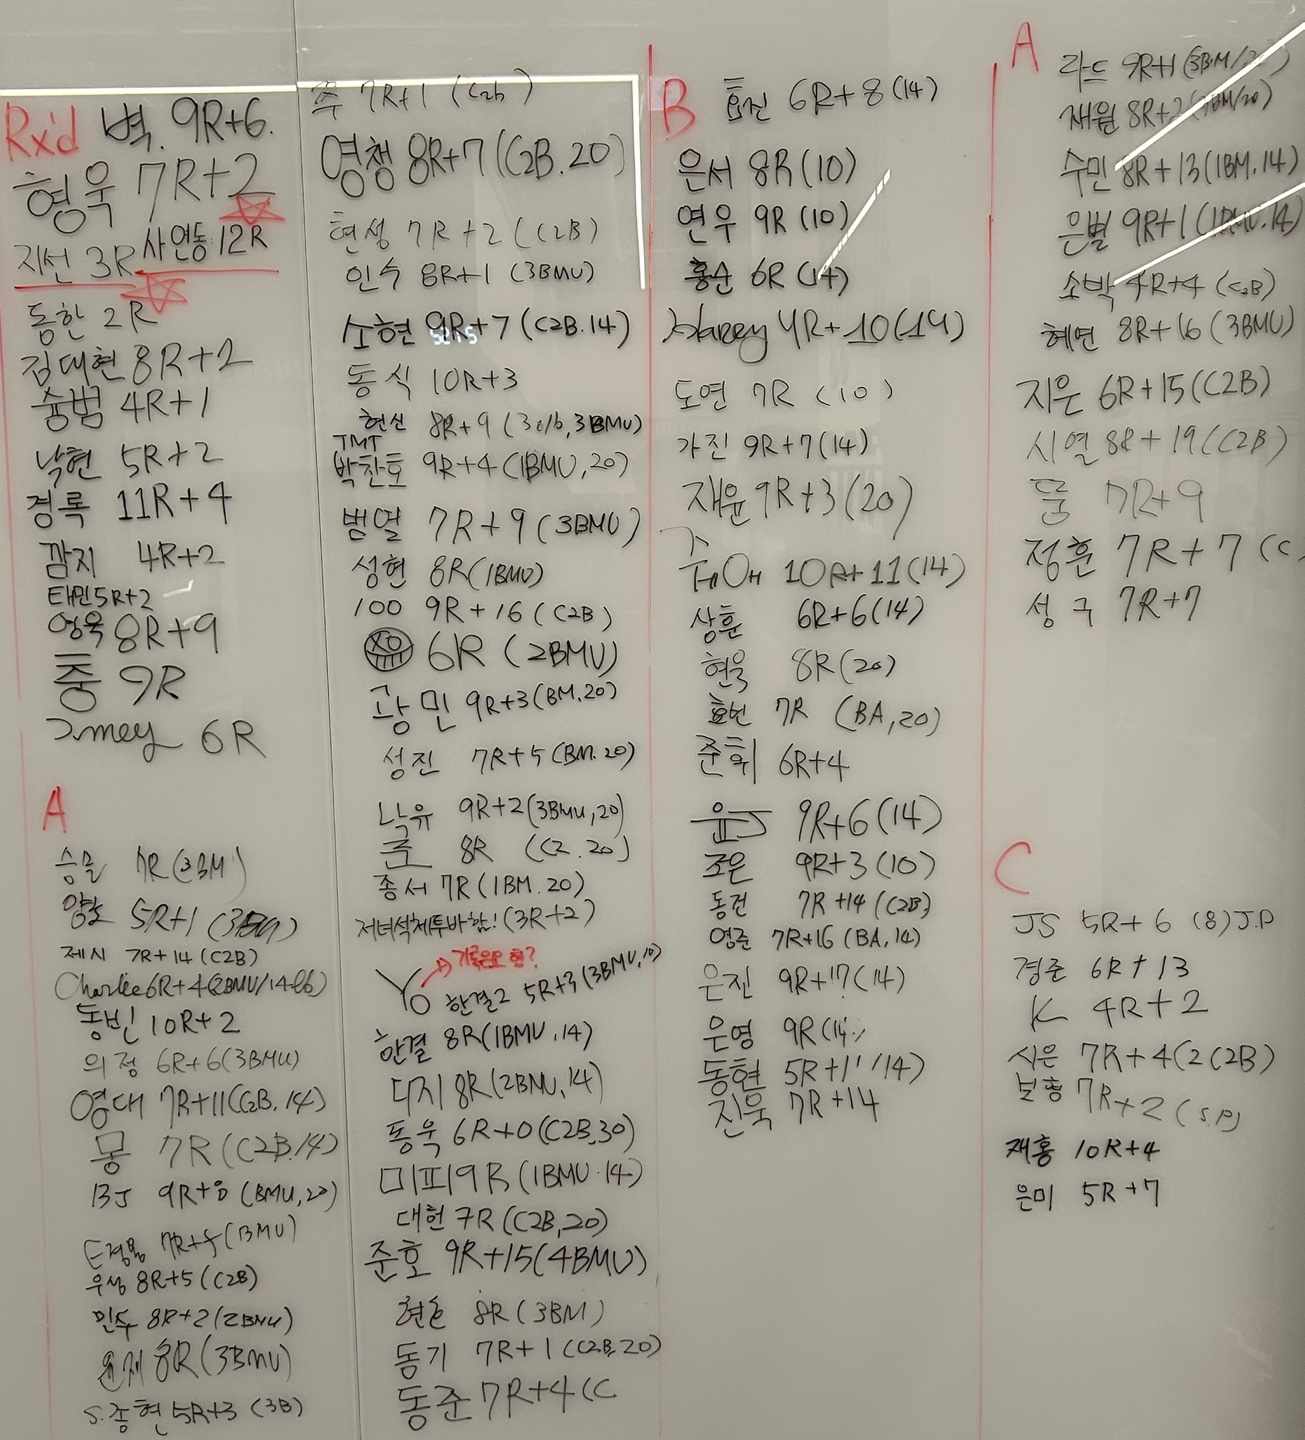 Rx'd 벽. 9R+6.
형욱 7R+2
지선 3R 사연동 12R
동한 2R
김대현 8R+2
숭범 4R+1
낙현 5R+2
경록 11R+4
깜지 4R+2
태민 5R+2
영욱 8R+9
중 9R
Jmey 6R
A
승물 7R (3BM)
양호 5R+1
제시 7R+14 (C2B)
Charlie 6R+4
동빈 10R+2
의정 6R+6 (3BMU)
영대 7R+11 (C2B. 14)
몽 7R (C2B.14)
BJ 9R+8 (BMU, 20)
7R+5 (BMU)
우성 8R+5 (C2B)
민주 8R+2 (2BMU)
윤재 8R (3BMU)
S. 종현 5R+3 (3B)
주 7R+1 (C2b)
영챙 8R+7 (C2B.20)
현성 7R+2 (C2B)
인수 8R+1 (3BMU)
소현 9R+7 (C2B.14)
동식 10R+3
현신 8R+9 (30lb, 3BMU)
TMT
박찬호 9R+4 (1BMU, 20)
범열 7R+9 (3BMU)
성현 8R (1BMU)
100 9R+16 (C2B)
6R (2BMU)
광민 9R+3 (BM.20)
성진 7R+5 (BM.20)
낙유 9R+2 (3BMU, 20)
쿤 8R (C2.20)
종서 7R (1BM.20)
저녁석제투바함! (3R+2)
YO → 기록은요 형?
한결2 5R+3 (3BMU, 10)
한결 8R (1BMU.14)
디지 8R (2BMU, 14)
동욱 6R+0 (C2B, 30)
미피 9R (1BMU.14)
대헌 7R (C2B, 20)
준호 9R+15 (4BMU)
현호 8R (3BM)
동기 7R+1 (C2B.20)
동준 7R+4 (C
B 효진 6R+8 (14)
은서 8R (10)
연우 9R (10)
홍순 6R (14)
Harey 4R+10 (14)
도연 7R (10)
가진 9R+7 (14)
재윤 9R+3 (20)
쥬아 10R+11 (14)
상훈 6R+6 (14)
현욱 8R (20)
효빈 7R (BA, 20)
준휘 6R+4
윤J 9R+6 (14)
조은 9R+3 (10)
동건 7R+14 (C2B)
영준 7R+16 (BA, 14)
은진 9R+17 (14)
은영 9R (14)
동현 5R+11 (14)
진욱 7R+14
A 라드 9R+1 (3BM/20)
재원 8R+2
수민 8R+13 (1BM.14)
은별 9R+1 (1BMU.14)
소박 4R+4 (C2B)
혜연 8R+16 (3BMU)
지은 6R+15 (C2B)
시열 8R+19 (C2B)
둠 7R+9
정훈 7R+7 (C
성구 7R+7
C
JS 5R+6 (8) J.P
경준 6R+13
K 4R+2
시은 7R+4 (2C2B)
보홍 7R+2 (S.P)
재홍 10R+4
은미 5R+7